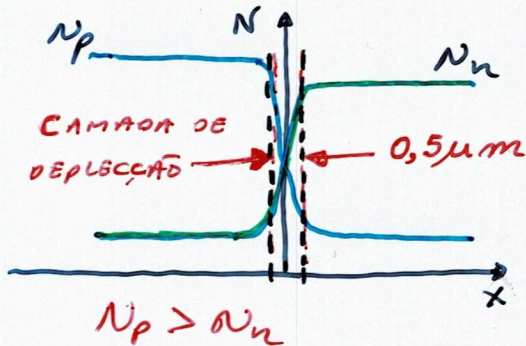 Np
N
Nn
CAMADA DE
DEPLECÇÃO
0,5µm
x
Np > Nn